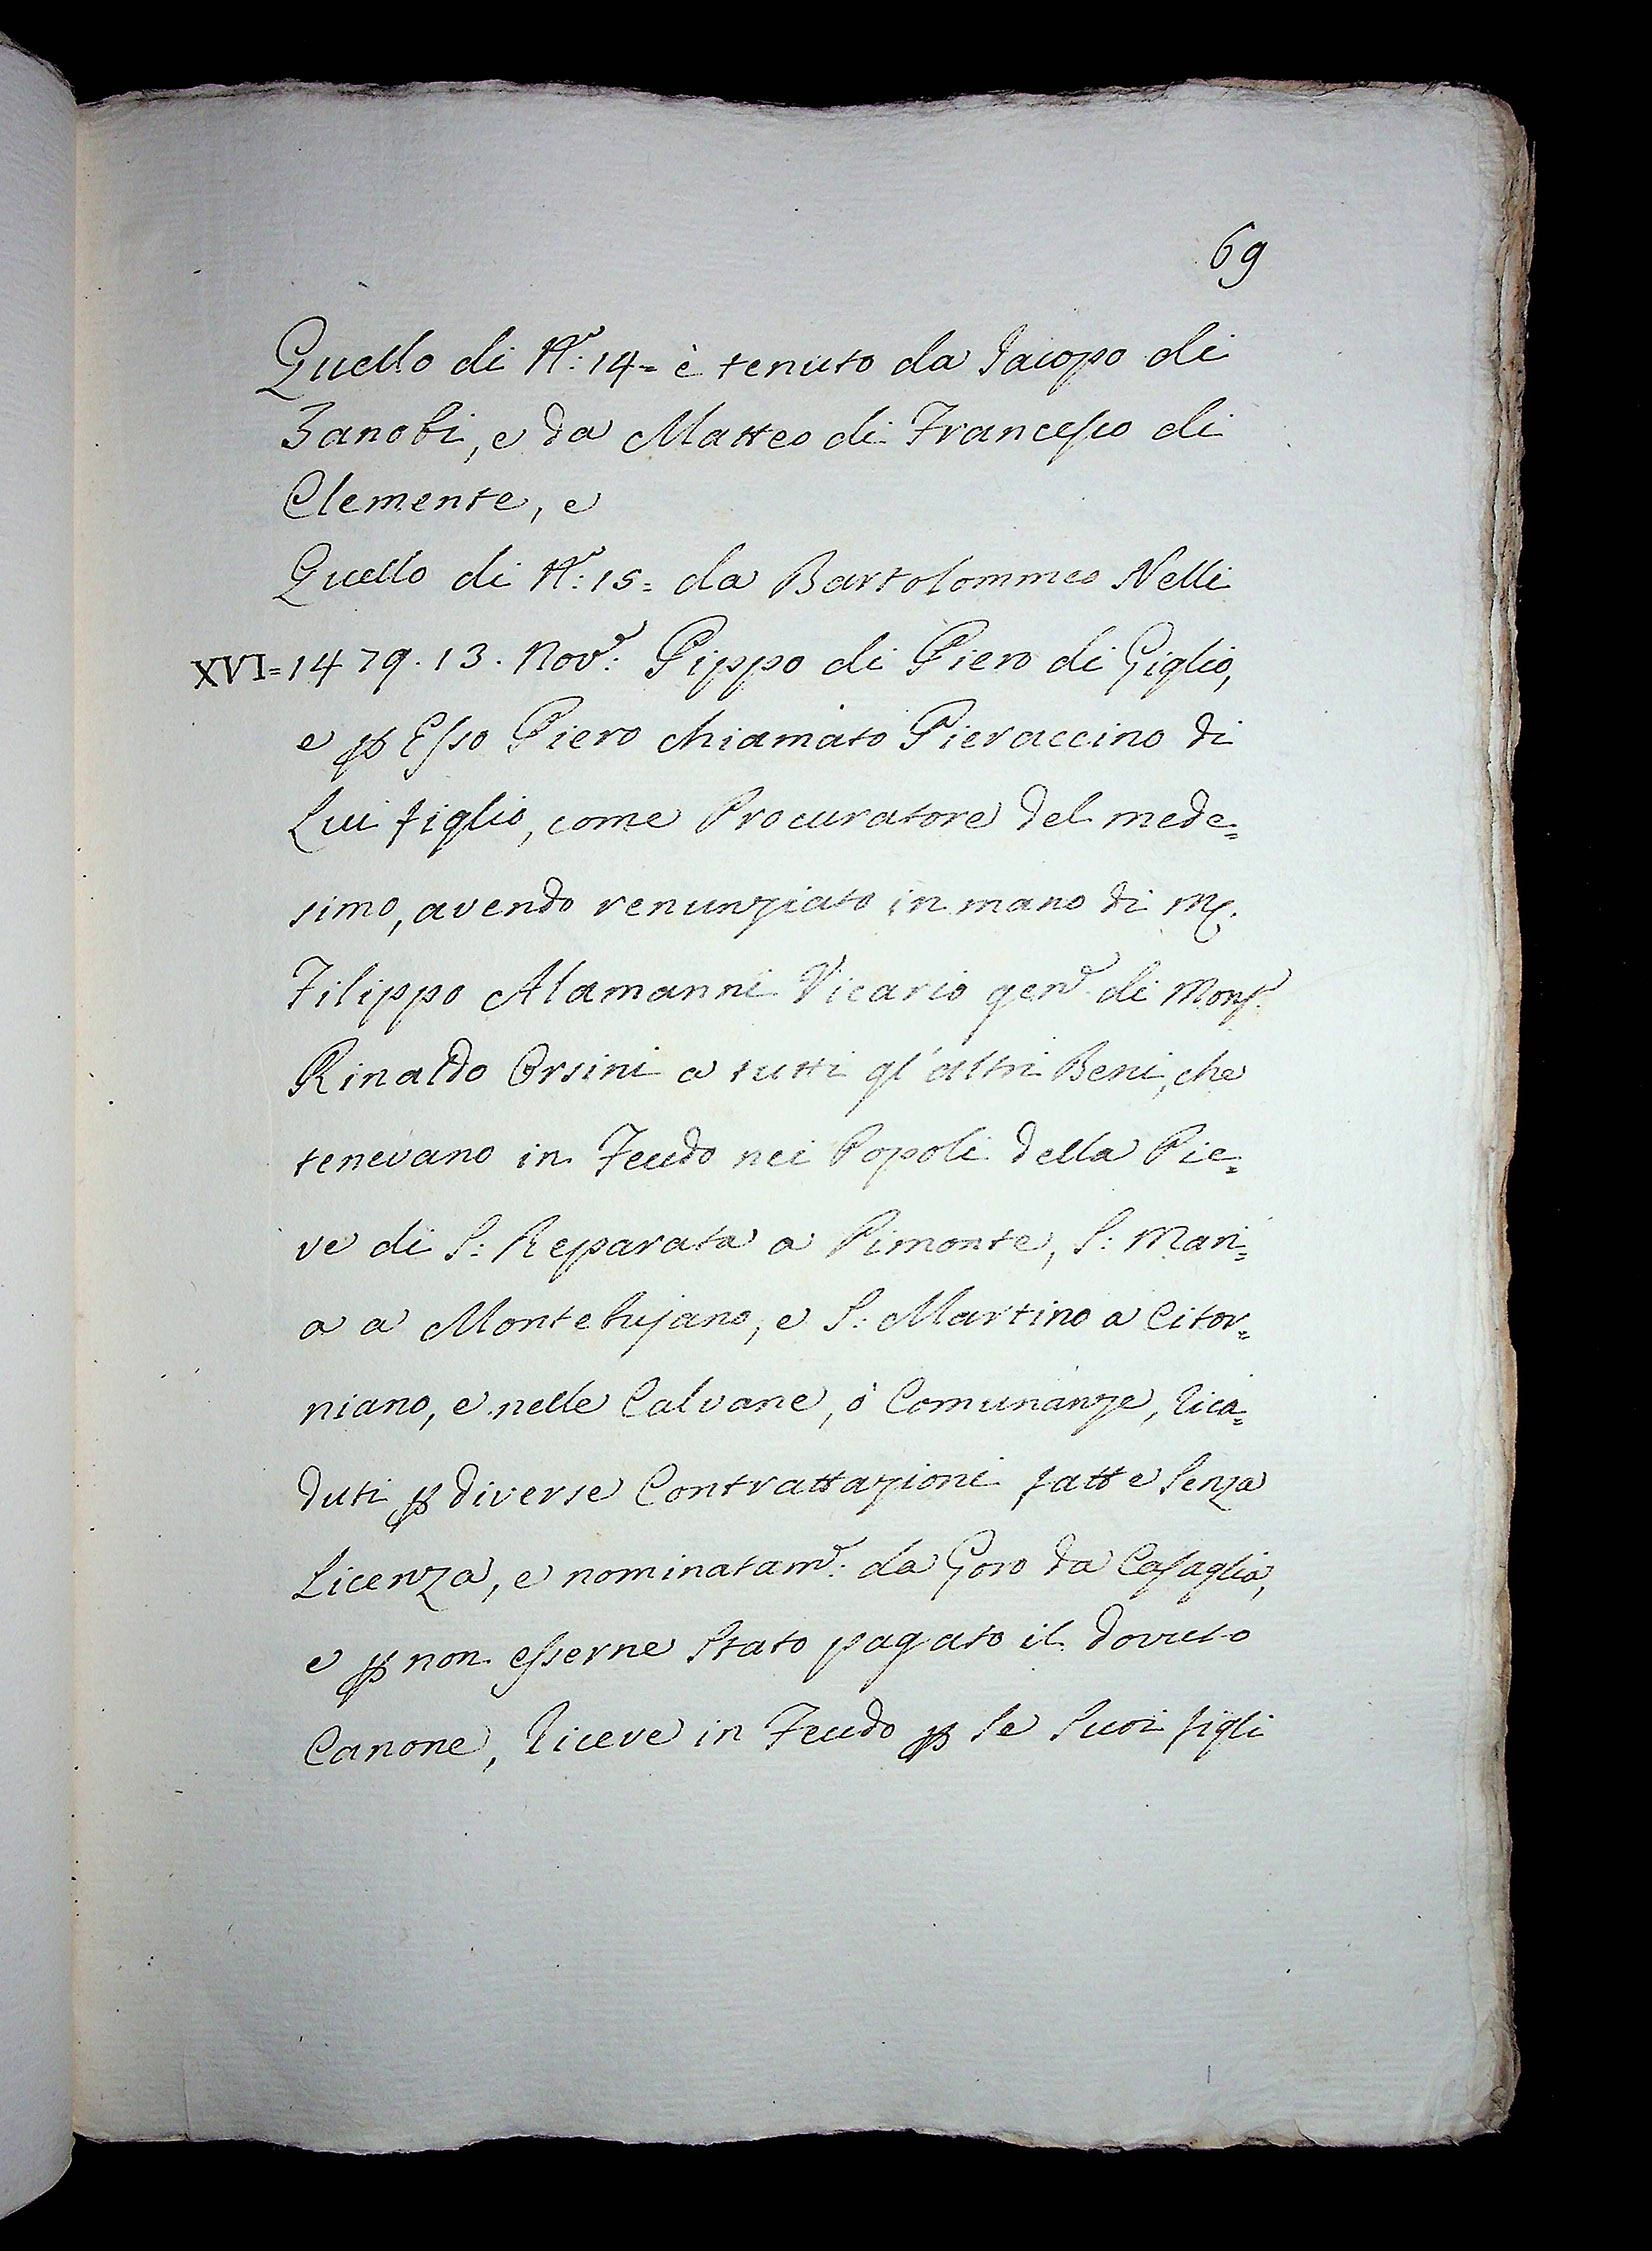 69
Quello di N.º 14= è tenuto da Iacopo di
Zanobi, e da Matteo di Francesco di
Clemente, e
Quello di N.º 15= da Bartolommeo Nelli
XVI= 1479. 13. Nov.e Pippo di Piero di Giglio,
e ꝑ Esso Piero chiamato Pieraccino di
Lui figlio, come Procuratore del mede=
simo, avendo renunziato in mano di M.
Filippo Alamanni Vicario gen.e di Mons.r
Rinaldo Orsini a tutti gl'altri Beni, che
tenevano in Feudo nei Popoli della Pie=
ve di S: Reparata a Pimonte, S: Mari=
a a Montebujano, e S: Martino a Citor=
niano, e nelle Calvane, ò Comunanze, rica=
duti ꝑ diverse Contrattazioni fatte senza
Licenza, e nominatam.e da Goro da Casaglia,
e ꝑ non esserne stato pagato il dovuto
Canone, riceve in Feudo ꝑ se suoi figli